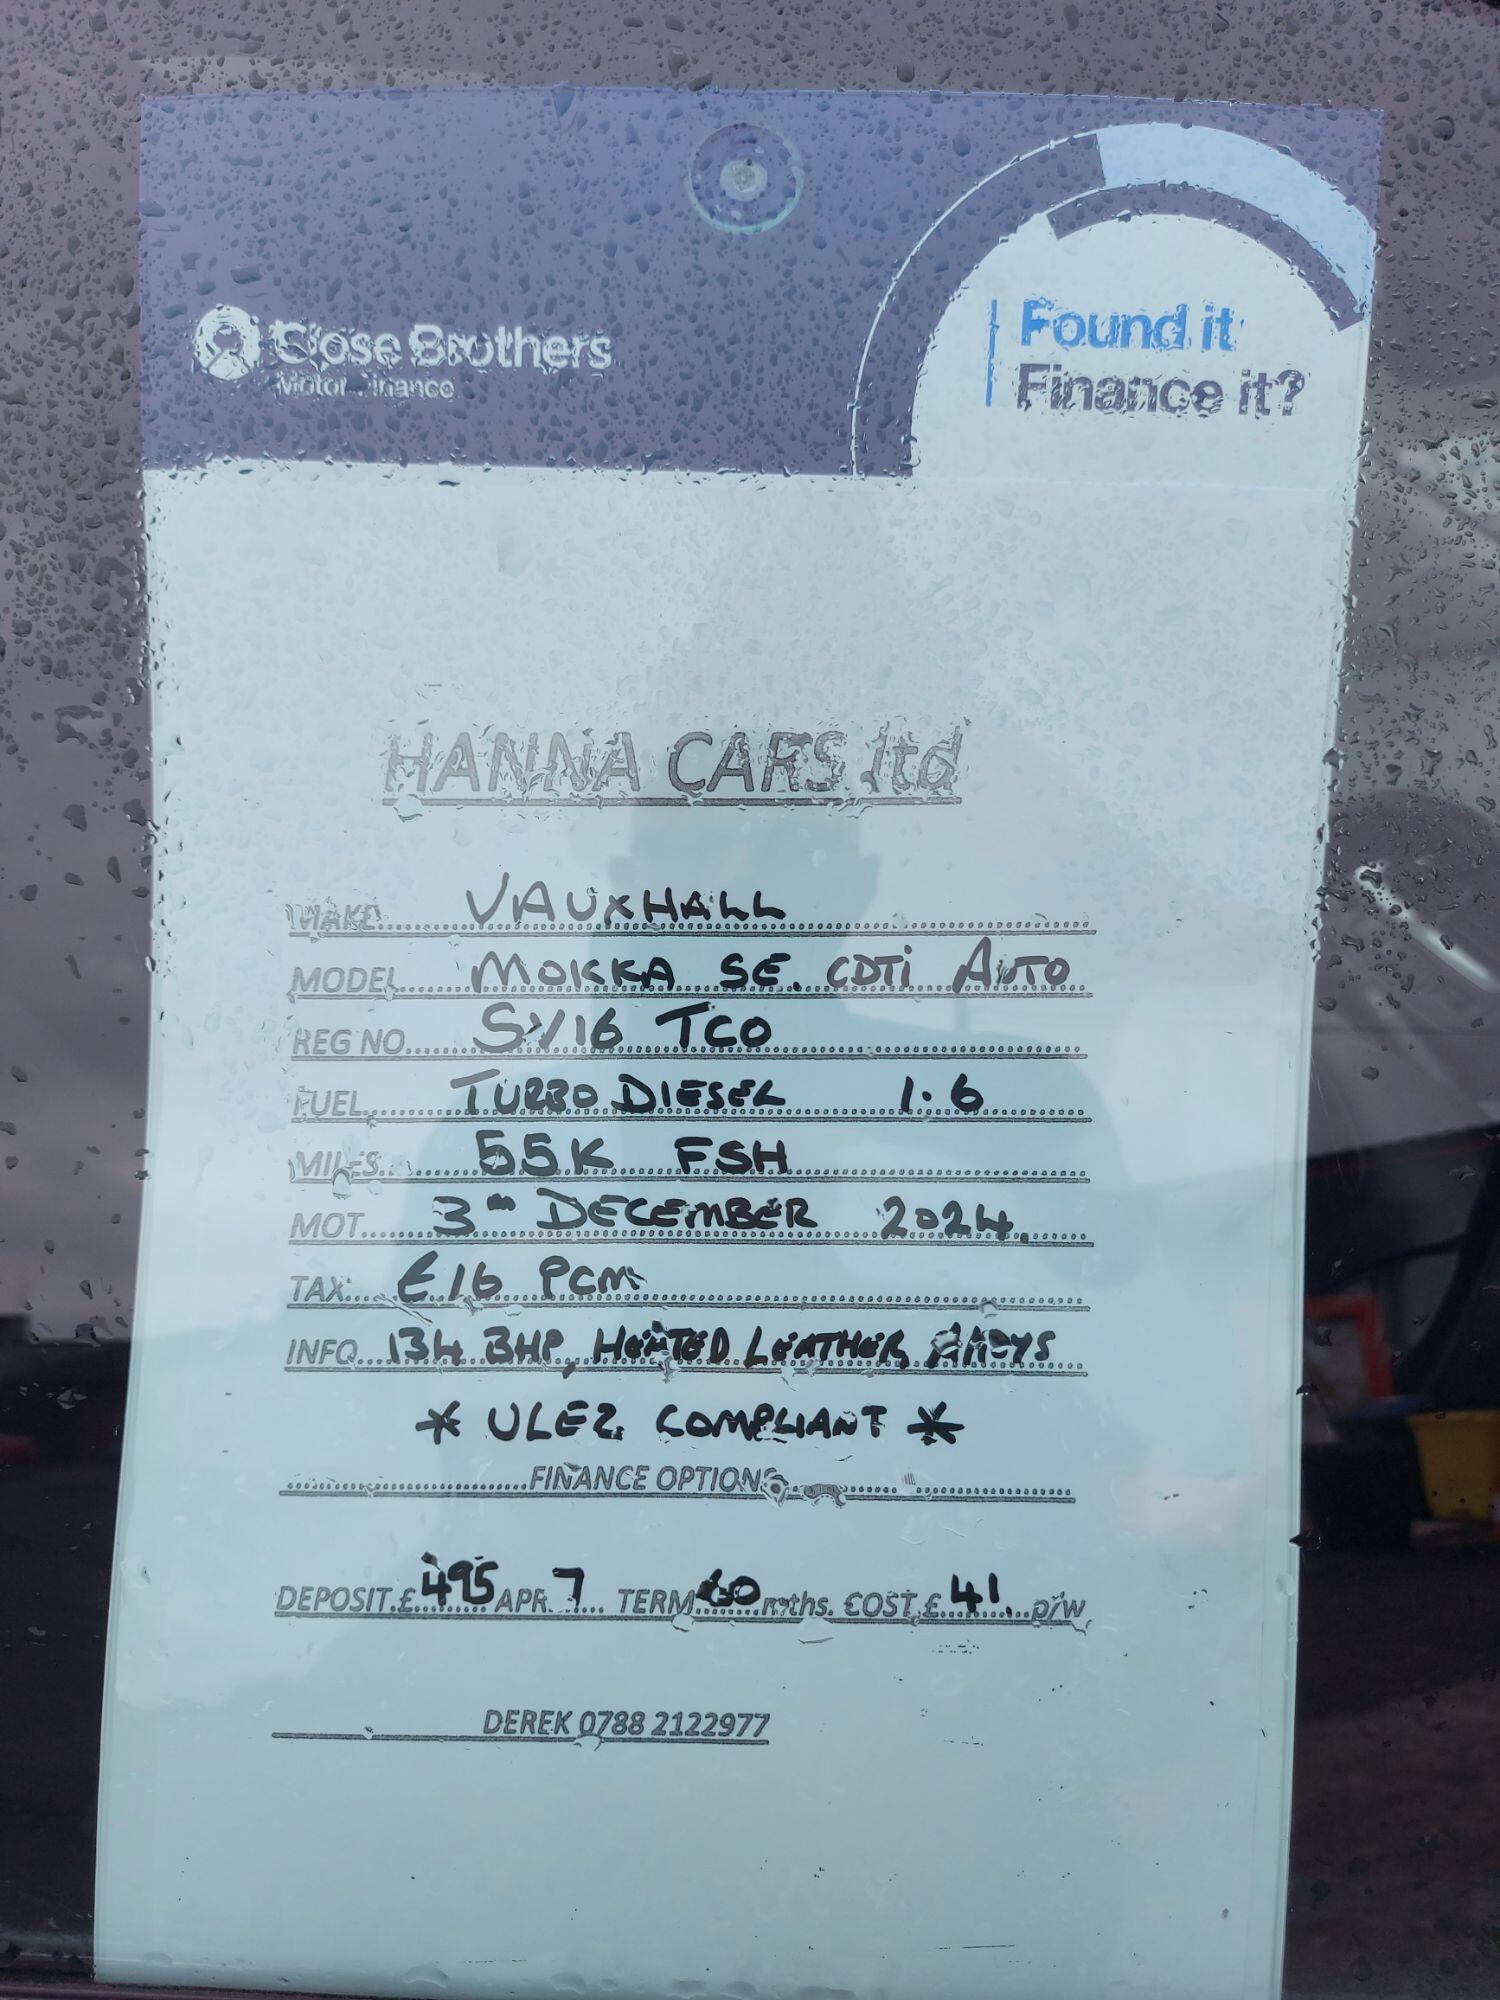 Close Brothers
Motor Finance
Found it
Finance it?
HANNA CARS ltd
MAKE...... VAUXHALL
MODEL...... MOKKA SE. CDTi AUTO
REG NO...... SV16 TCO
FUEL....... TURBO DIESEL 1.6
MILES....... 55K FSH
MOT...... 3RD DECEMBER 2024.
TAX..... £16 PCM
INFO... 134 BHP, HEATED LEATHER, ALLOYS
* ULEZ COMPLIANT *
FINANCE OPTIONS
DEPOSIT.£ 495 APR. 7 TERM 60 mths. COST £ 41. p/w
DEREK 0788 2122977